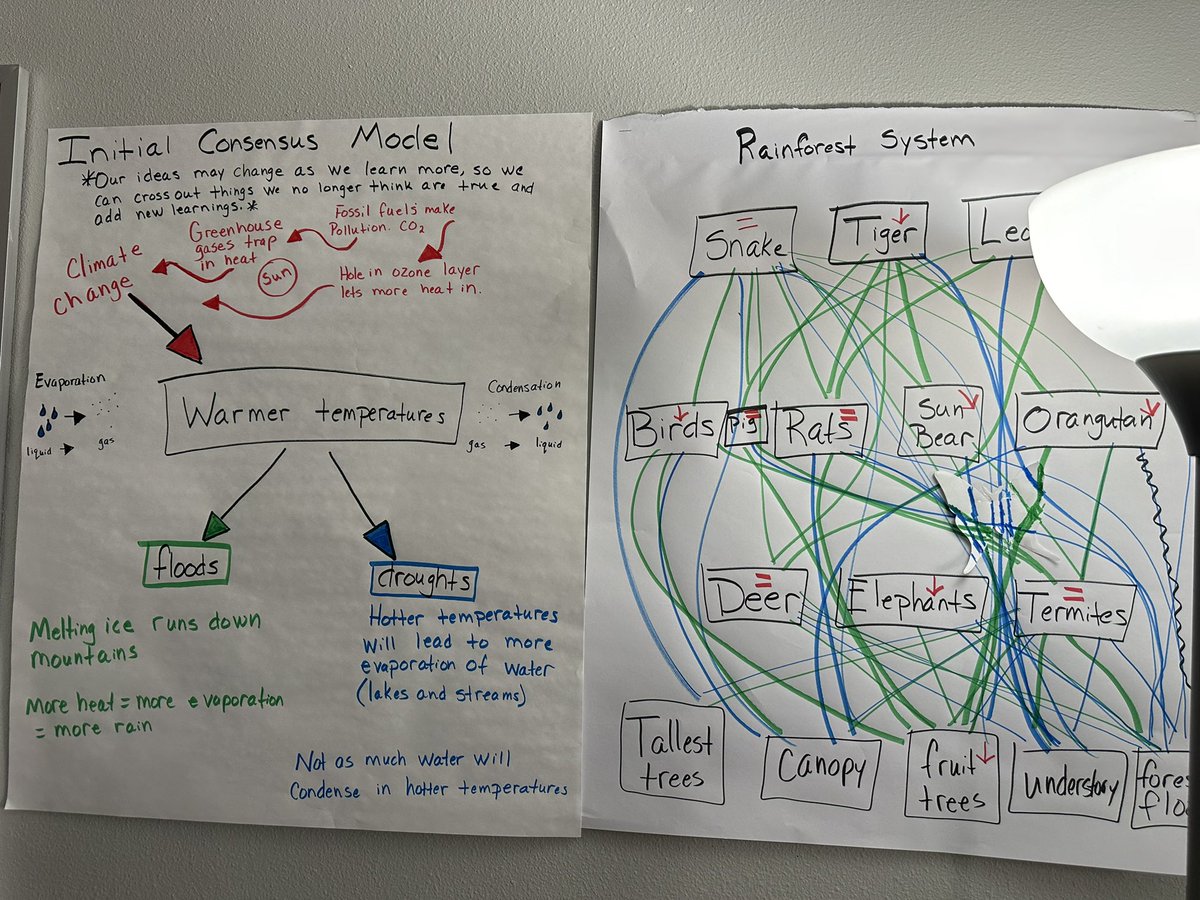 Initial Consensus Model
*Our ideas may change as we learn more, so we
can cross out things we no longer think are true and
add new learnings.*
Fossil fuels make
Pollution. CO₂
Greenhouse
gases trap
in heat
Sun
Climate
change
Hole in ozone layer
lets more heat in.
Evaporation
liquid
gas
Warmer temperatures
Condensation
gas
liquid
floods
droughts
Melting ice runs down
mountains
More heat = more evaporation
= more rain
Hotter temperatures
will lead to more
evaporation of water
(lakes and streams)
Not as much water will
Condense in hotter temperatures
Rainforest System
Snake
Tiger
Birds
Pig
Rats
Sun
Bear
Orangutan
Deer
Elephants
Termites
Tallest
trees
Canopy
fruit
trees
understory